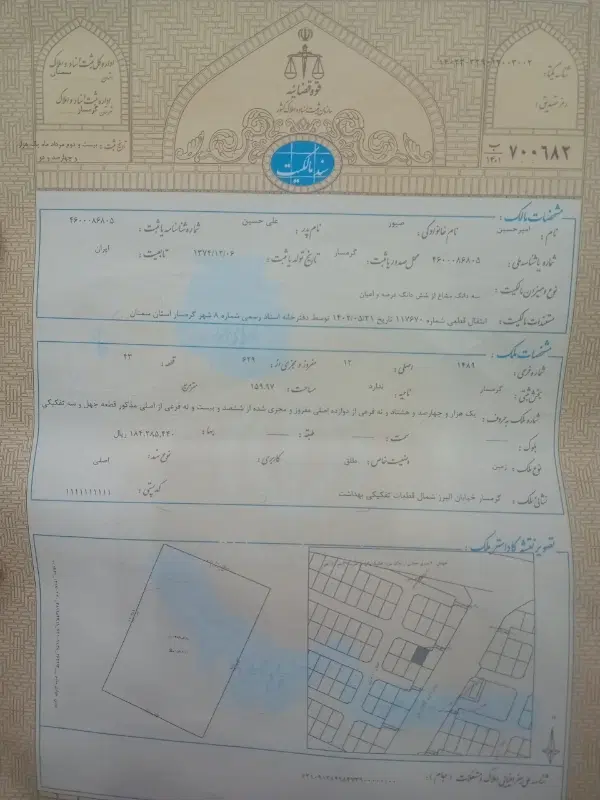 قوه قضائیه
سازمان ثبت اسناد و املاک کشور
اداره کل ثبت اسناد و املاک
استان سمنان
اداره ثبت اسناد و املاک
گرمسار
تاریخ ثبت : بیست و دوم مرداد ماه یک هزار و چهارصد و دو
شناسه یکتا :
رمز تصدیق :
ب
۱۴۰۱
۷۰۰۶۸۲
سند مالکیت
مشخصات مالک :
نام : امیرحسین نام خانوادگی : صبور نام پدر : علی حسین شماره شناسنامه یا ثبت : ۴۶۰۰۰۸۶۸۰۵
شماره یا شناسه ملی : ۴۶۰۰۰۸۶۸۰۵ محل صدور یا ثبت : گرمسار تاریخ تولد یا ثبت : ۱۳۷۲/۱۲/۰۶ تابعیت : ایران
نوع و میزان مالکیت : سه دانگ مشاع از شش دانگ عرصه و اعیان
مستندات مالکیت : انتقال قطعی شماره ۱۱۷۶۷۰ تاریخ ۱۴۰۲/۰۵/۲۱ توسط دفترخانه اسناد رسمی شماره ۸ شهر گرمسار استان سمنان
مشخصات ملک :
شماره فرعی : ۱۴۸۹ اصلی : ۱۲ مفروز و مجزی از : ۶۲۹ قطعه : ۴۳
بخش ثبتی : گرمسار ناحیه : ندارد مساحت : ۱۵۹.۹۷ مترمربع
شماره ملک به حروف : یک هزار و چهارصد و هشتاد و نه فرعی از دوازده اصلی مفروز و مجزی شده از ششصد و بیست و نه فرعی از اصلی مذکور قطعه چهل و سه تفکیکی
بلوک : سمت : طبقه : بها : ۱۸۴,۲۸۵,۴۴۰ ریال
نوع ملک : زمین وضعیت خاص : طلق کاربری : نوع سند : اصلی
نشانی ملک : گرمسار خیابان البرز شمال قطعات تفکیکی بهداشت کدپستی : ۱۱۱۱۱۱۱۱۱۱
تصویر نقشه کاداستر ملک :